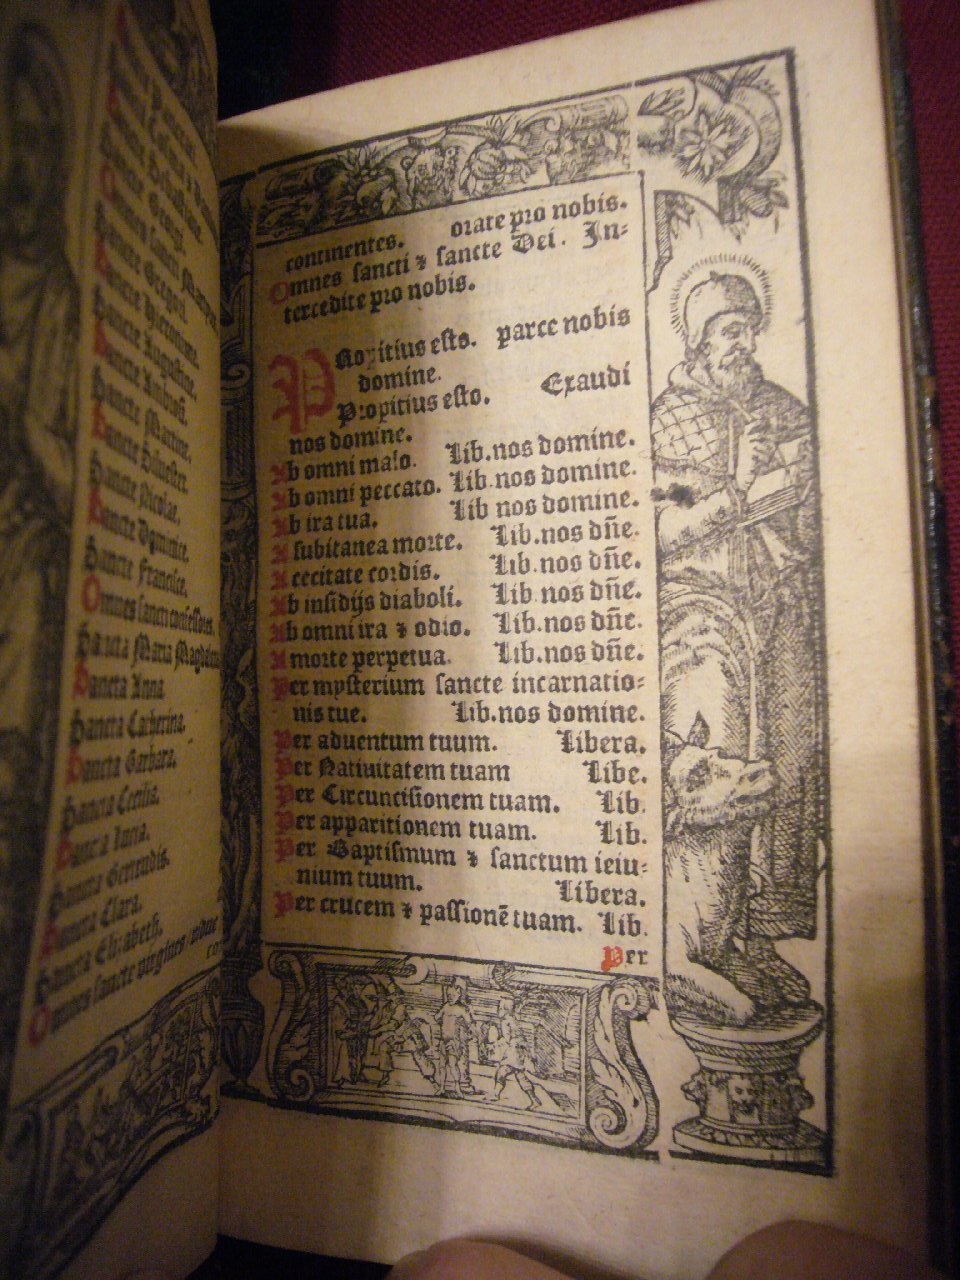 Sancte Georgi.
Sancte Gregori.
Sancte Hieronyme.
Sancte Augustine.
Sancte Ambrosi.
Sancte Martine.
Sancte Siluester.
Sancte Nicolae.
Sancte Dominice.
Sancte Francisce.
Omnes sancti confessores.
Sancta Maria Magdalena
Sancta Anna
Sancta Catherina.
Sancta Barbara.
Sancta Cecilia.
Sancta Lucia.
Sancta Gertrudis.
Sancta Clara.
Sancta Elizabeth.
Omnes sancte virgines & vidue
co
continentes. orate pro nobis.
Omnes sancti & sancte Dei. In-
tercedite pro nobis.
PRopitius esto. parce nobis
domine.
Propitius esto. Exaudi
nos domine.
Ab omni malo. Lib.nos domine.
Ab omni peccato. Lib.nos domine.
Ab ira tua. Lib nos domine.
A subitanea morte. Lib.nos dñe.
A cecitate cordis. Lib.nos dñe.
Ab insidijs diaboli. Lib.nos dñe.
Ab omni ira & odio. Lib.nos dñe.
A morte perpetua. Lib.nos dñe.
Per mysterium sancte incarnatio-
nis tue. Lib.nos domine.
Per aduentum tuum. Libera.
Per Natiuitatem tuam Libe.
Per Circuncisionem tuam. Lib.
Per apparitionem tuam. Lib.
Per Baptismum & sanctum ieiu-
nium tuum. Libera.
Per crucem & passionē tuam. Lib.
Per